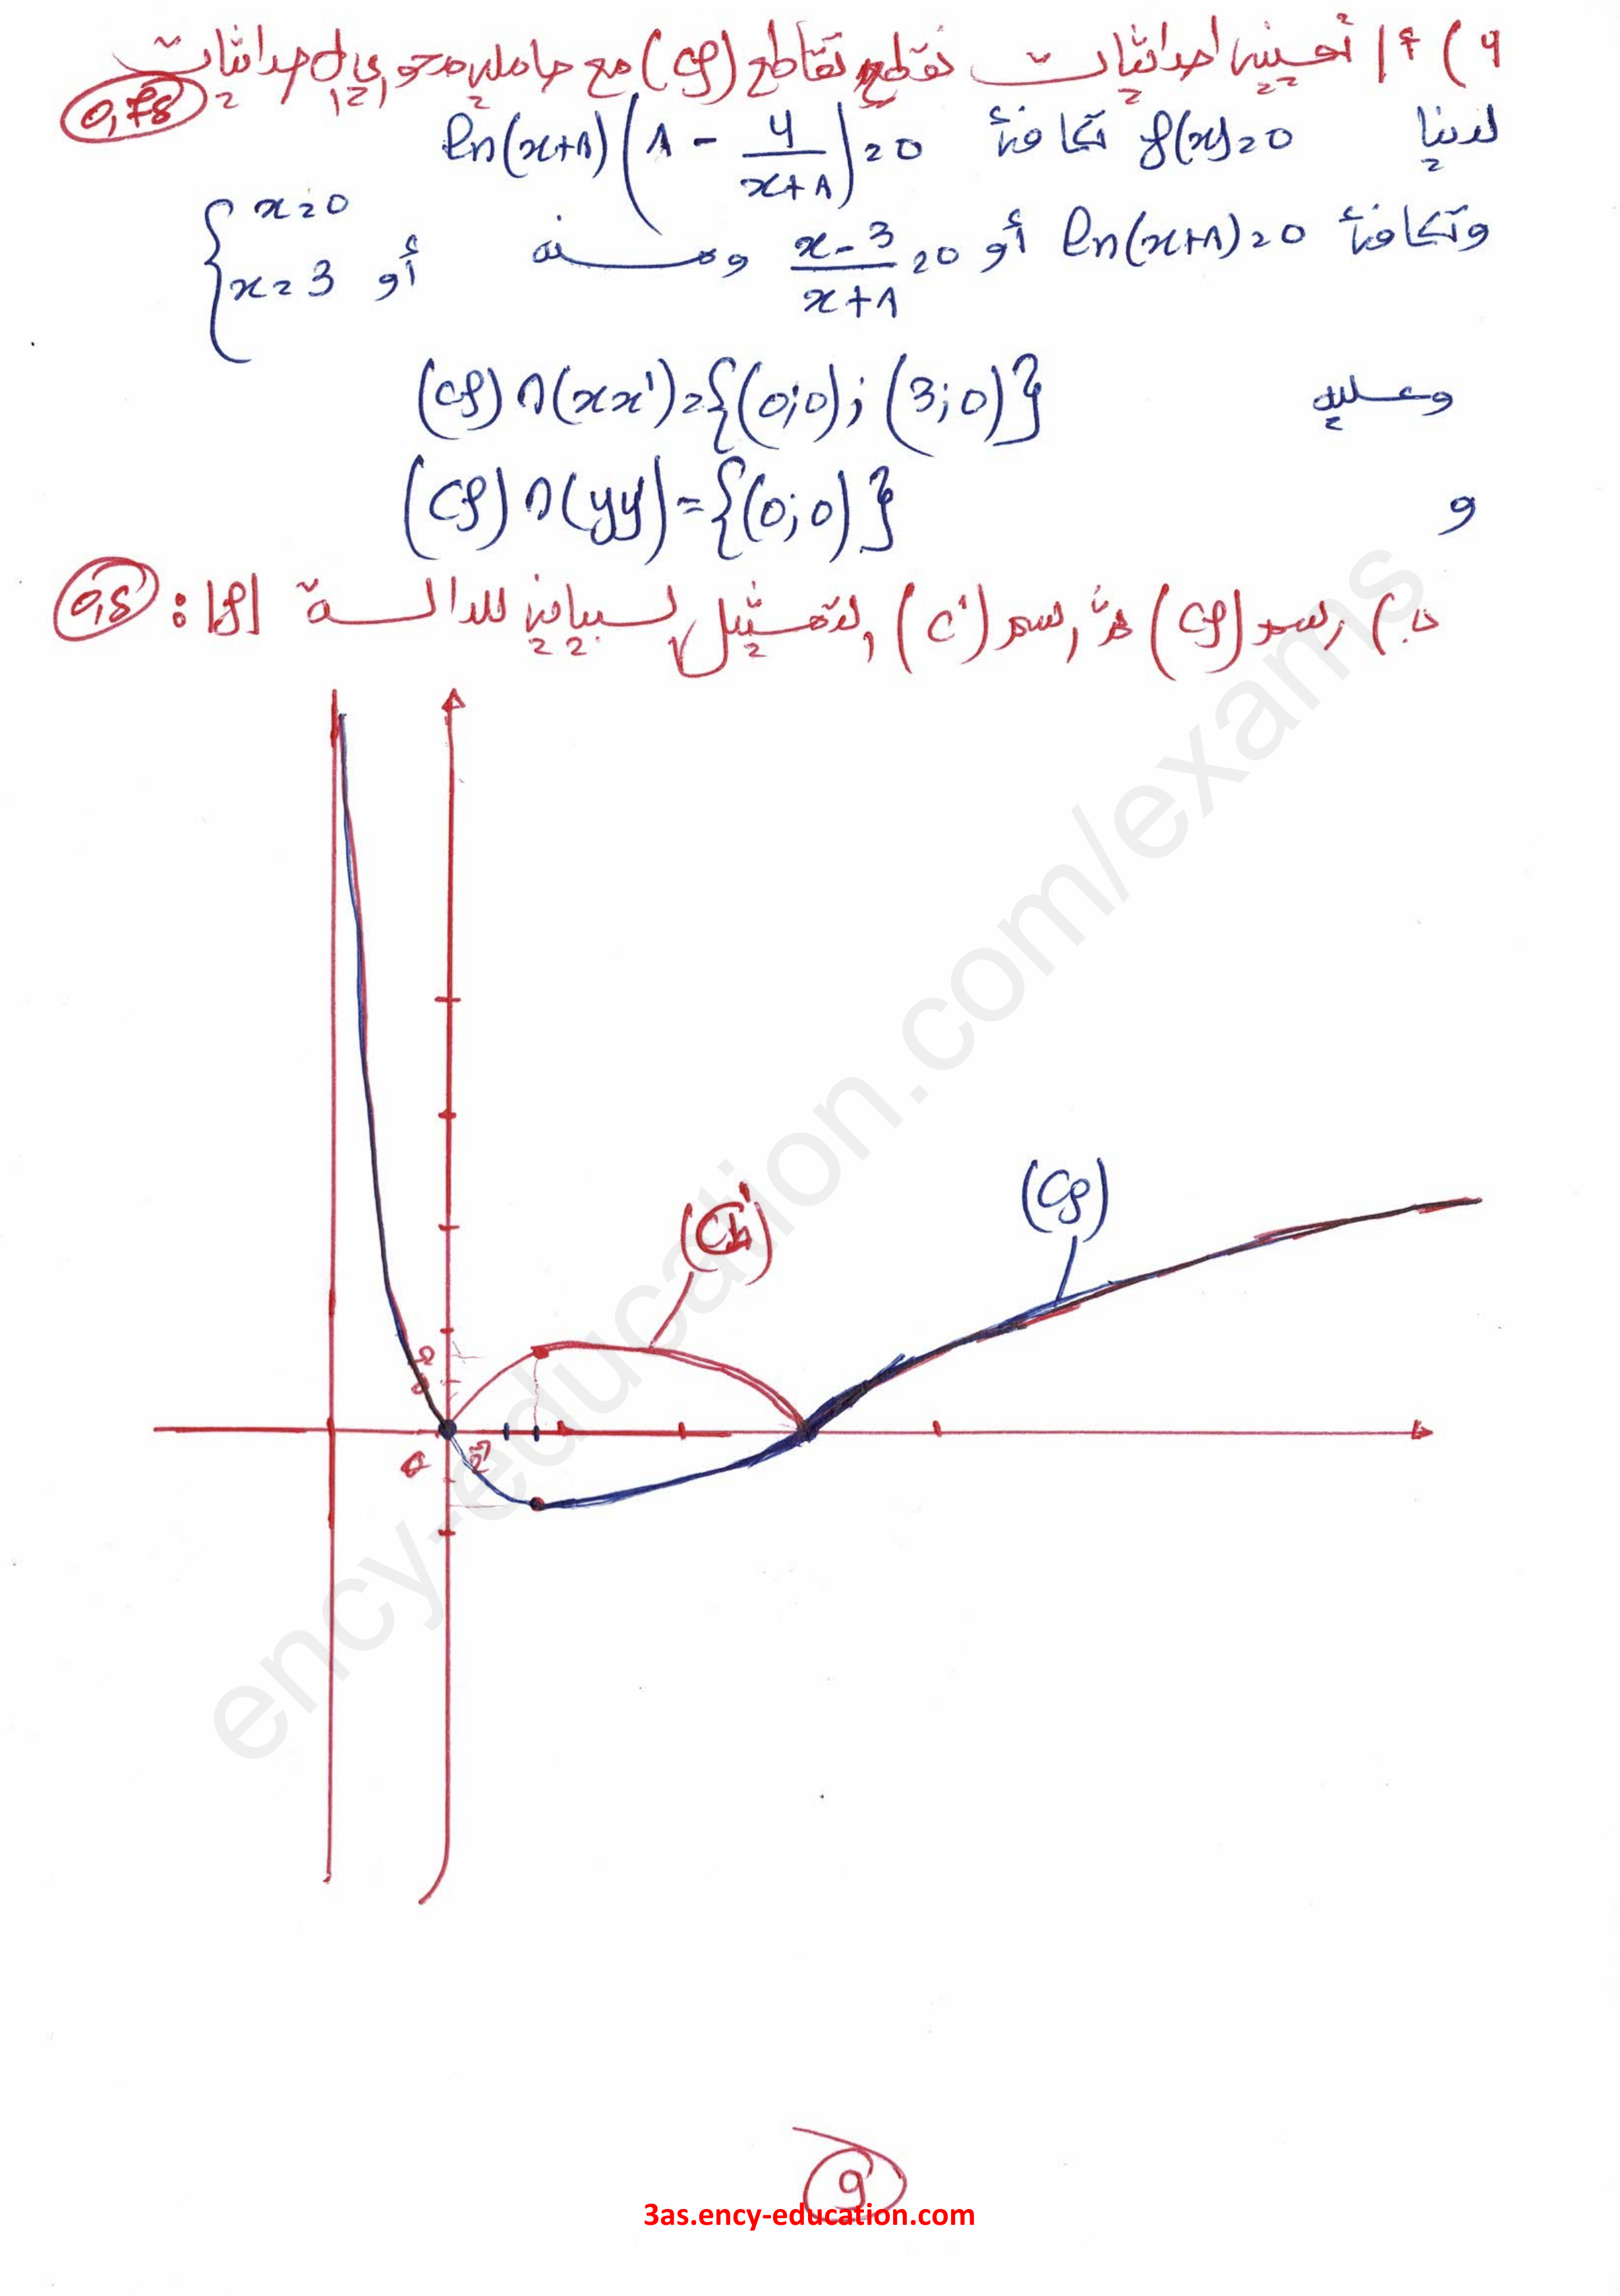 4) أ/ تعيين احداثيات نقط تقاطع (Cf) مع حاملي محوري الاحداثيات
0,75
لدينا f(x)=0 تكافئ ln(x+1)(1 - 4/(x+1))=0
وتكافئ ln(x+1)=0 أو (x-3)/(x+1)=0 ومنه {x=0 أو x=3
وعليه (Cf)∩(xx')={(0;0);(3;0)}
و (Cf)∩(yy')={(0;0)}
ب) رسم (Cf) ثم رسم (C') التمثيل البياني للدالة |f|:
0,5
(Cf)
ency-education.com/exams
9
3as.ency-education.com